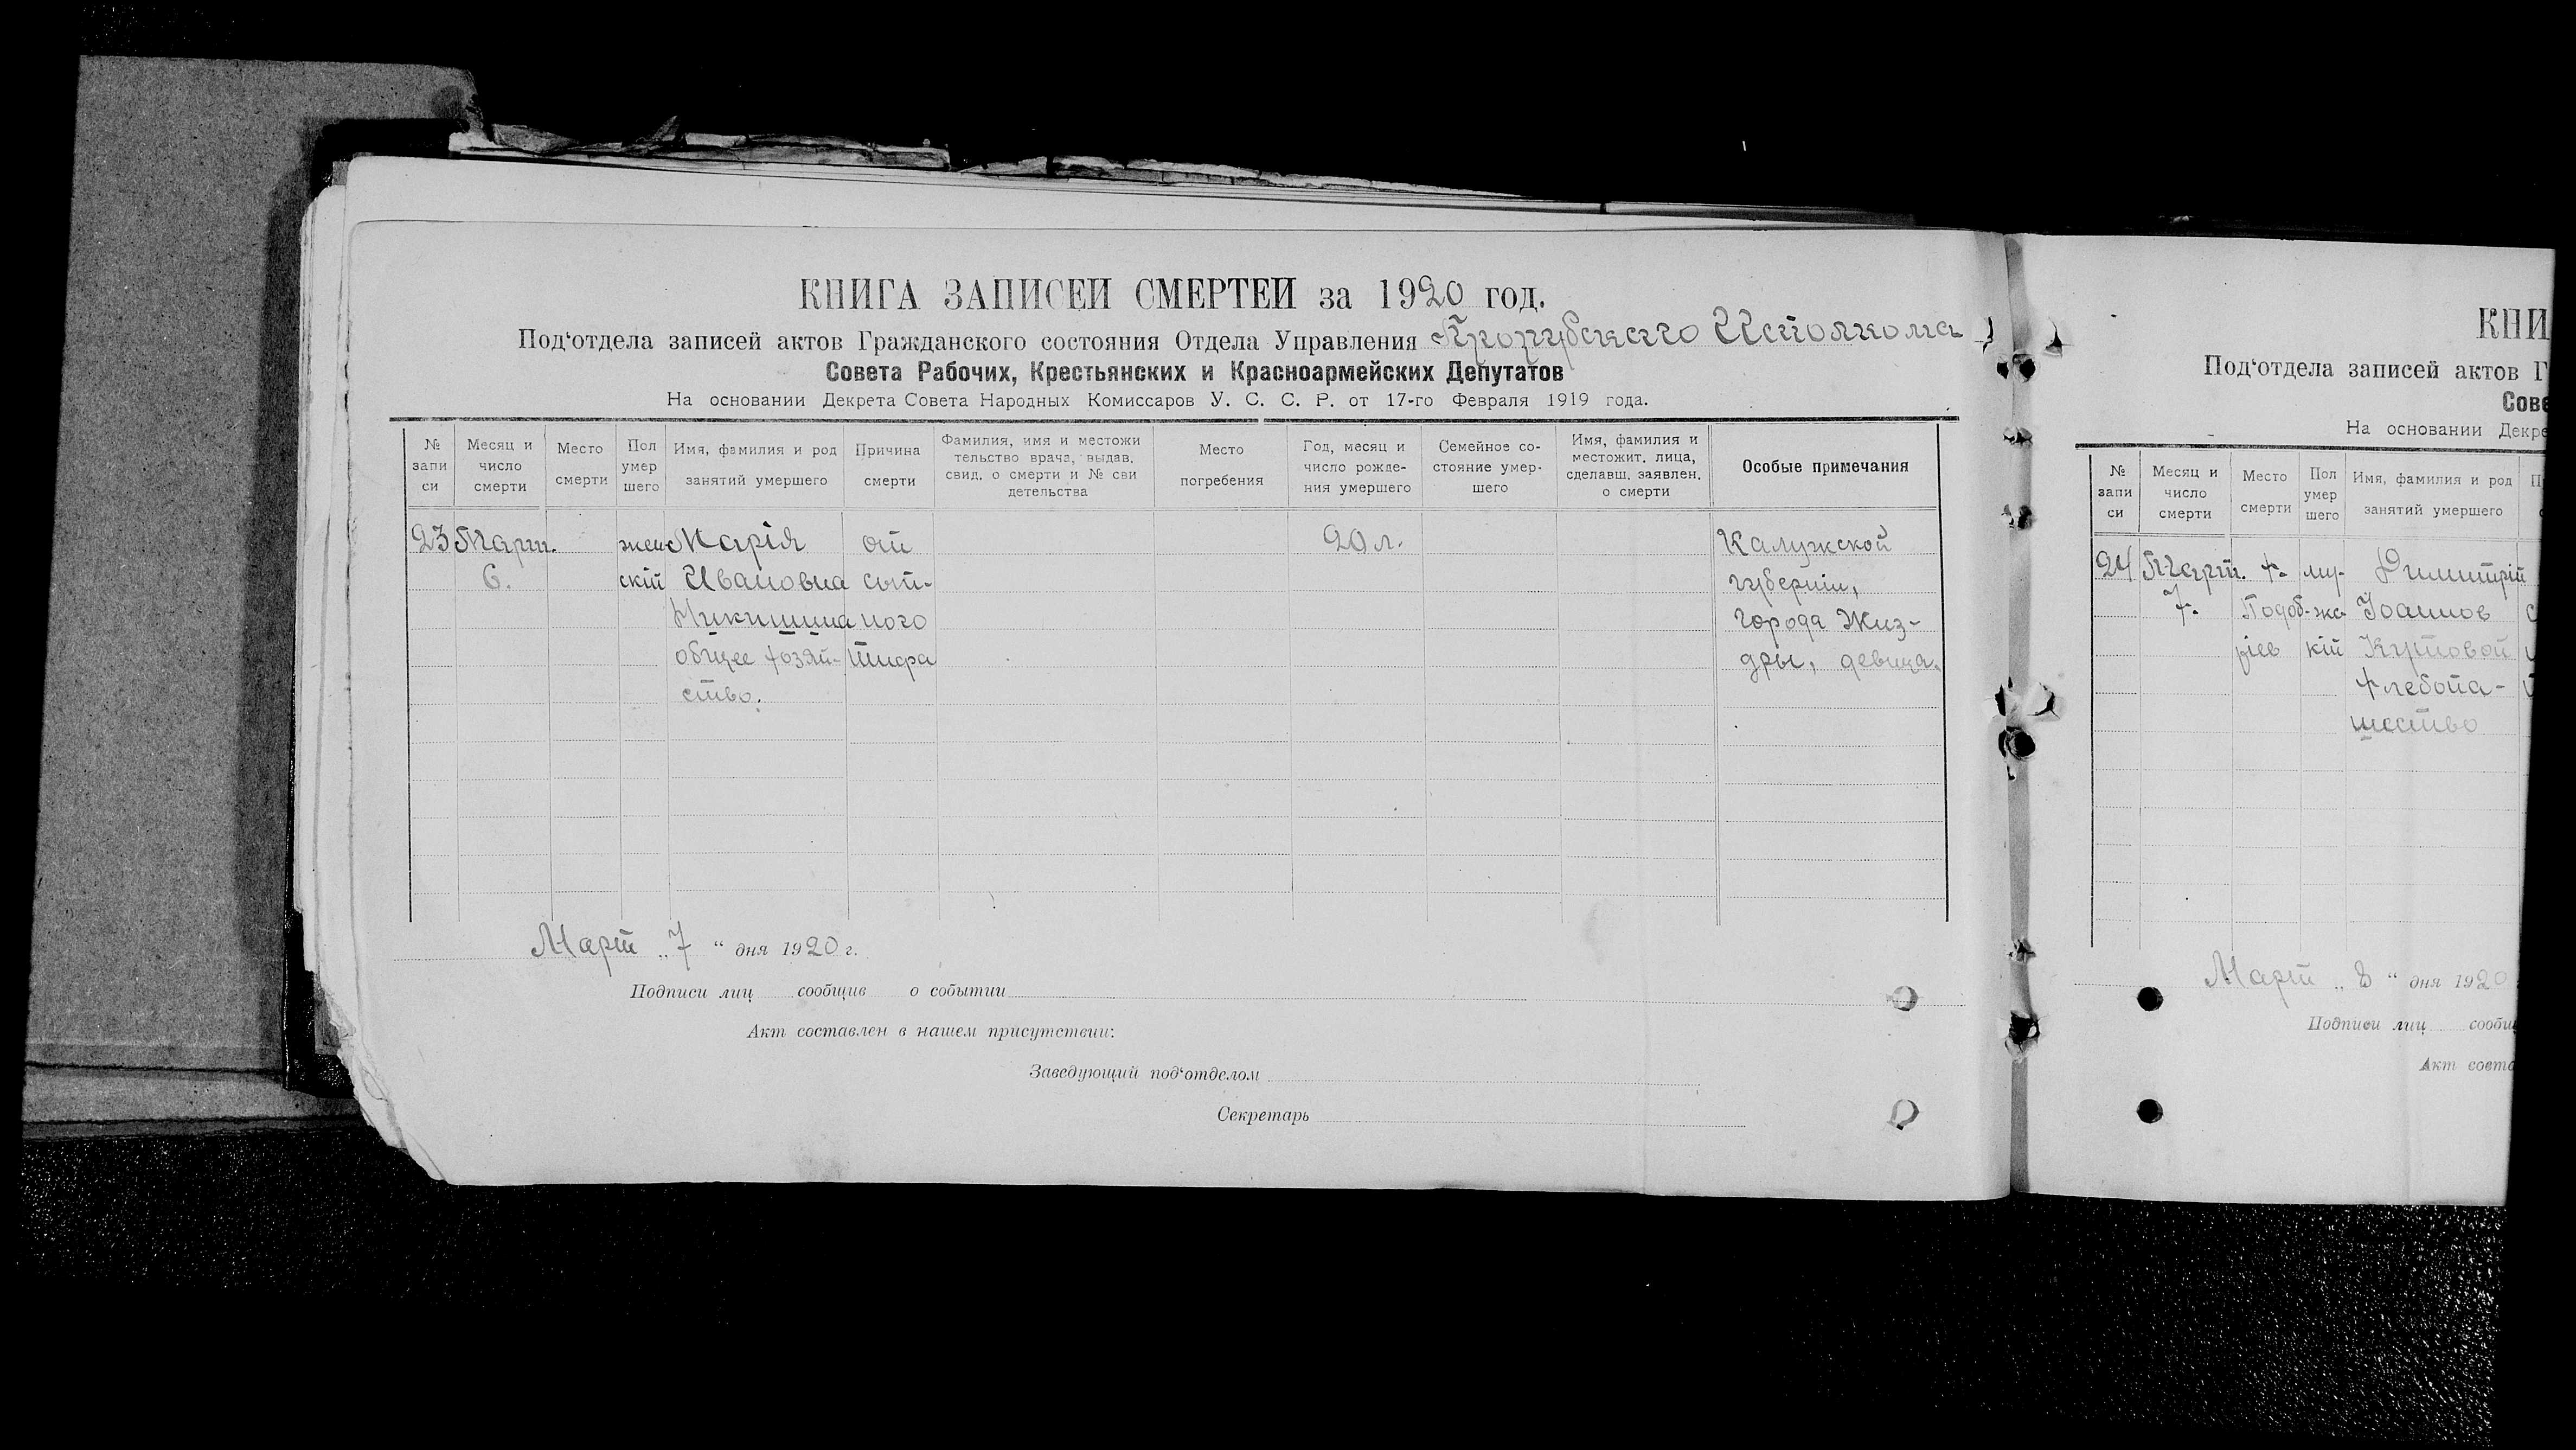 КНИГА ЗАПИСЕЙ СМЕРТЕЙ за 1920 год.
Под‘отдела записей актов Гражданского состояния Отдела Управления Исполкома
Совета Рабочих, Крестьянских и Красноармейских Депутатов
На основании Декрета Совета Народных Комиссаров У. С. С. Р. от 17-го Февраля 1919 года.
№ запи си
Месяц и число смерти
Место смерти
Пол умер шего
Имя, фамилия и род занятий умершего
Причина смерти
Фамилия, имя и местожи тельство врача, выдав. свид. о смерти и № сви детельства
Место погребения
Год, месяц и число рожде- ния умершего
Семейное со- стояние умер- шего
Имя, фамилия и местожит. лица, сделавш. заявлен. о смерти
Особые примечания
23 Март. жен Марія от 20 л. Калужской
6. скій Ивановна сып- губерніи,
Никишина ного города Жиз-
общее хозяй- тифа дры, девица.
ство.
Март „ 7 “ дня 1920 г.
Подписи лиц сообщив о событии
Акт составлен в нашем присутствии:
Заведующий под‘отделом
Секретарь
КНИ
Под‘отдела записей актов Г
Сове
На основании Декре
№ запи си
Месяц и число смерти
Место смерти
Пол умер шего
Имя, фамилия и род занятий умершего
24 Март. х. му- Димитрій
7. Подоб- жс Іоанов
ріев кій Кутовой
хлебопа-
шество
Март „ 8 “ дня 1920
Подписи лиц сообщ
Акт соста